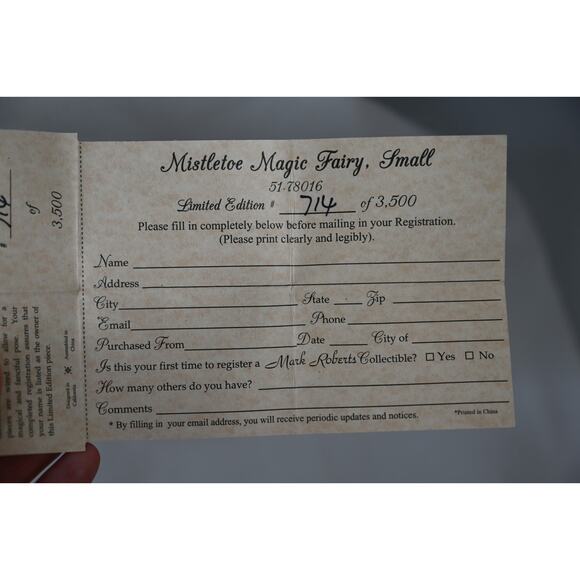 Mistletoe Magic Fairy, Small
51-78016
Limited Edition # 714 of 3,500
Please fill in completely below before mailing in your Registration.
(Please print clearly and legibly).
Name
Address
City State Zip
Email Phone
Purchased From Date City of
Is this your first time to register a Mark Roberts Collectible? ☐ Yes ☐ No
How many others do you have?
Comments
* By filling in your email address, you will receive periodic updates and notices.
*Printed in China
# 714 of 3,500
pieces are wired to allow for a
magical and fanciful pose. Your
completed registration assures that
your name is listed as the owner of
this Limited Edition piece.
Designed in California
Assembled in China